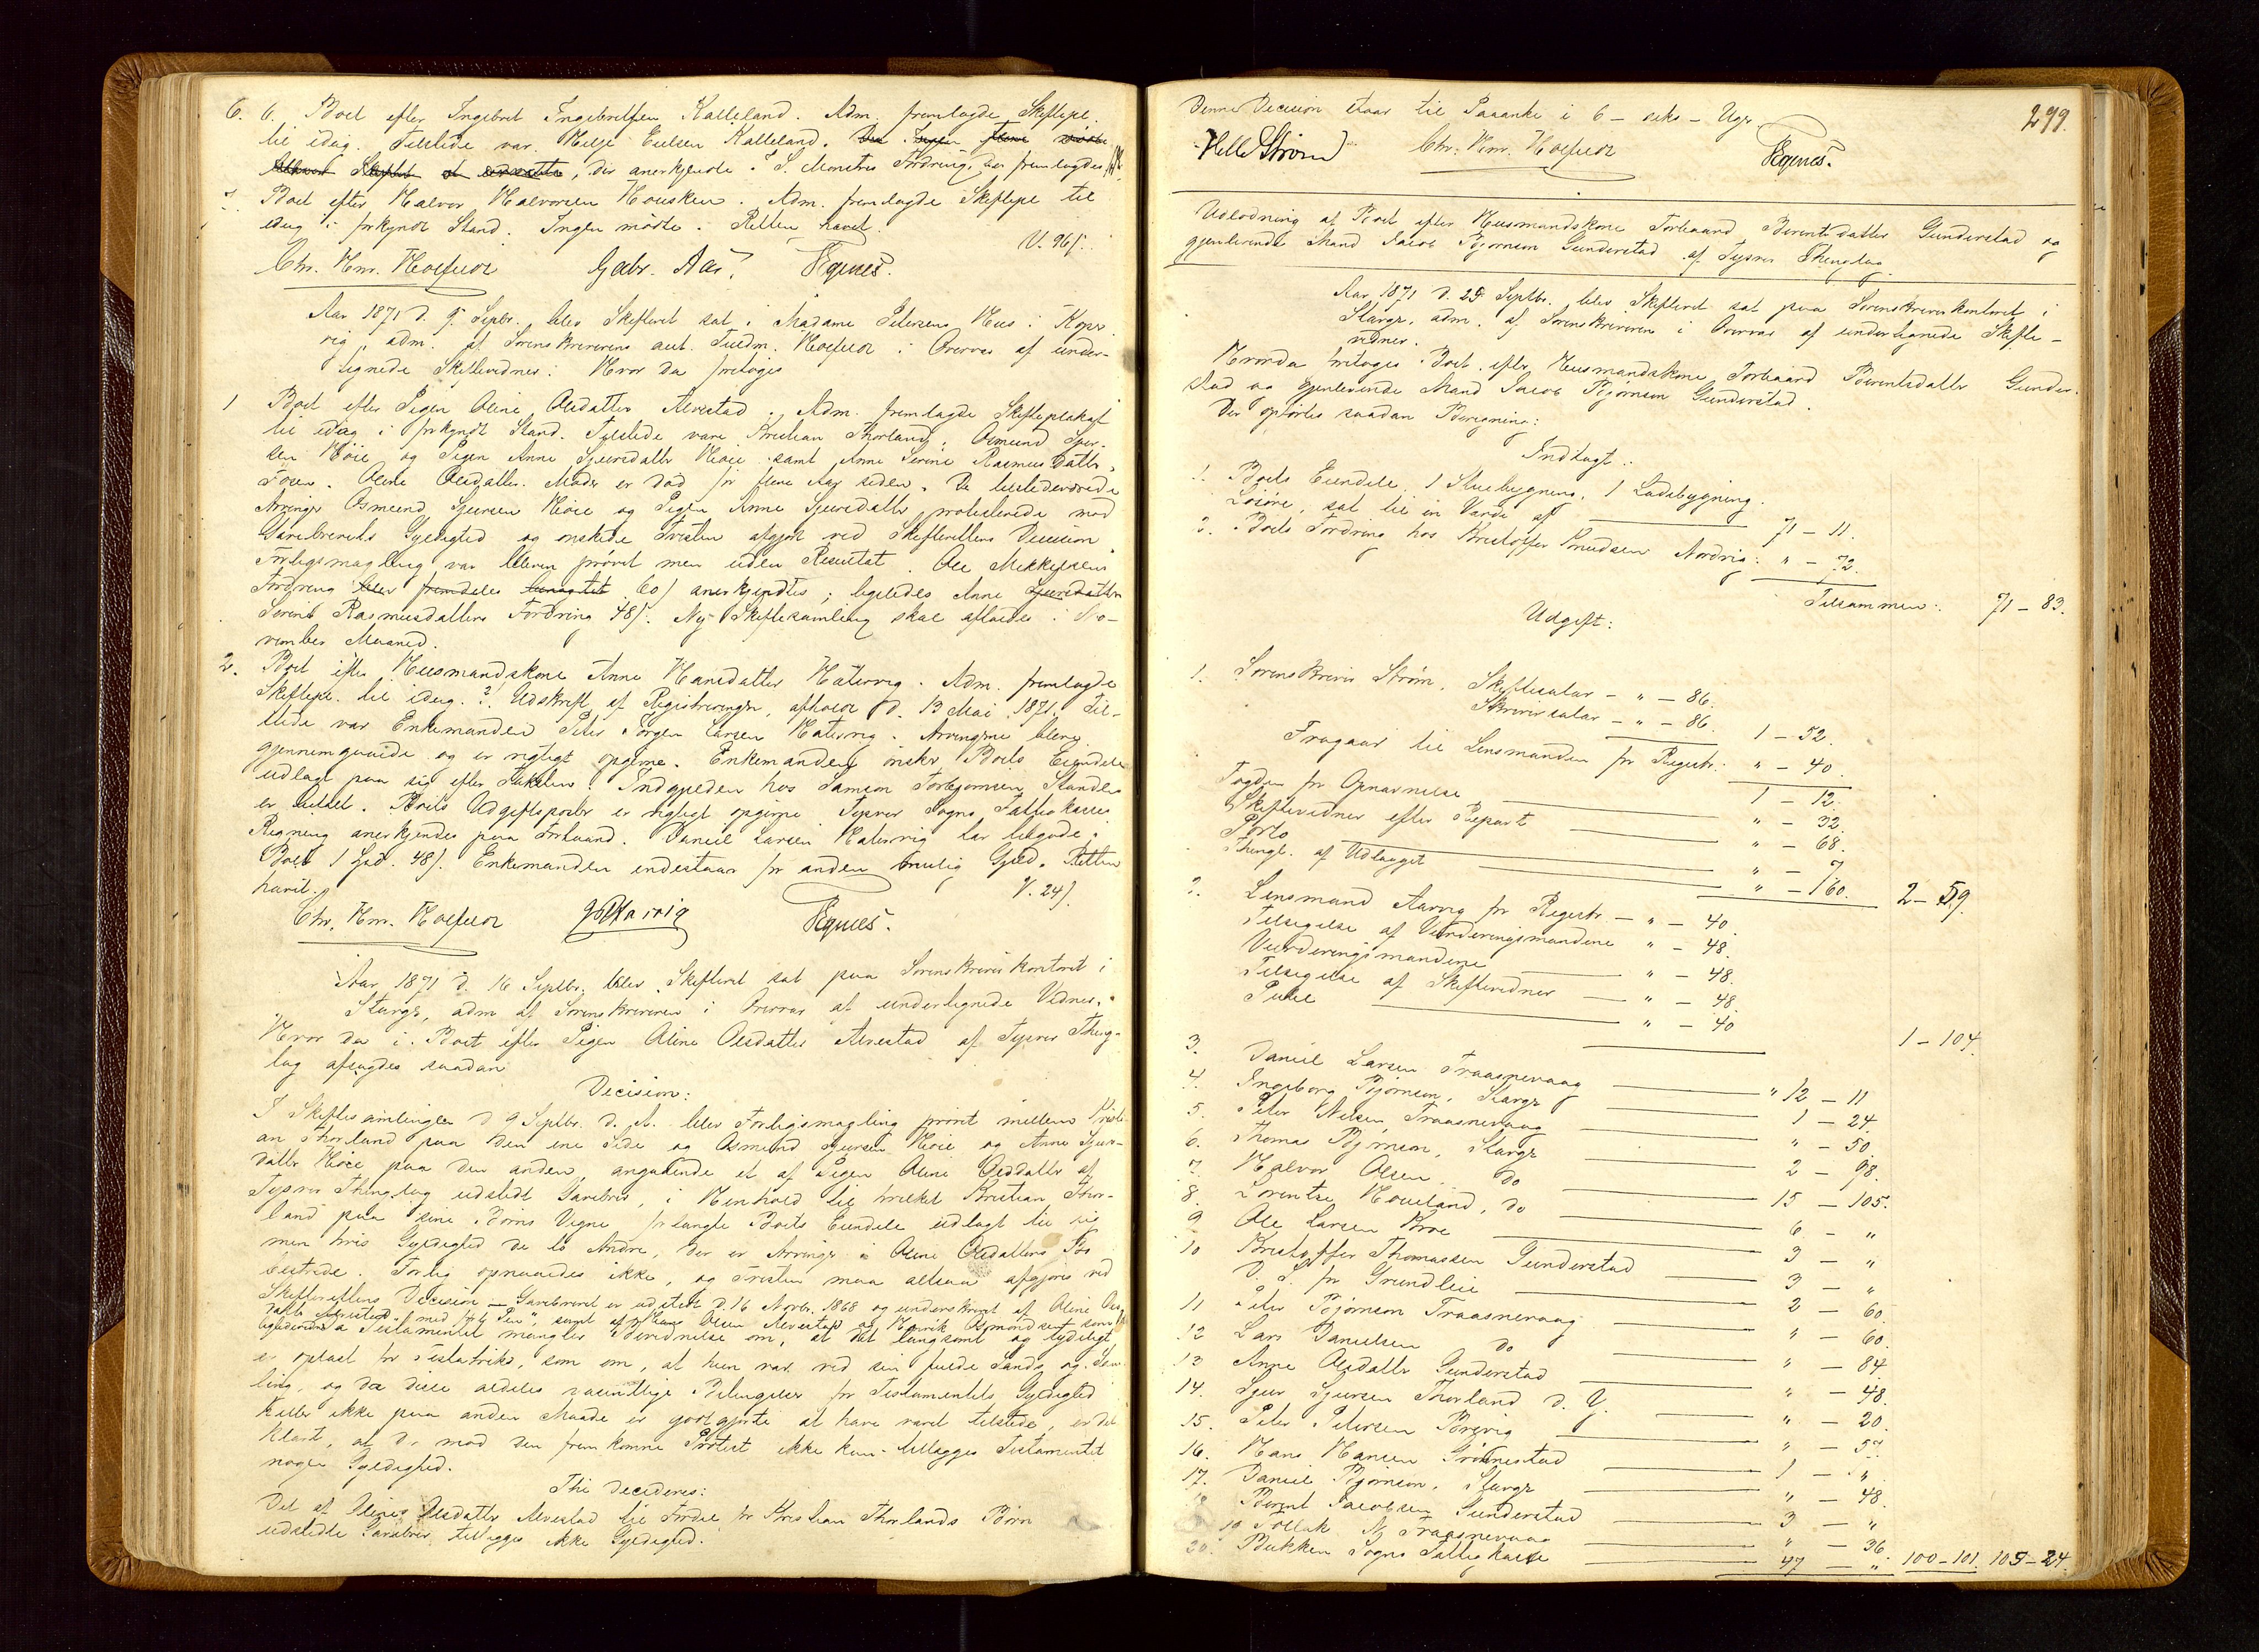 6. 6. Boet efter Ingebret Ingebretsen Kalleland. Adm. fremlagde Skiftepl.
til idag. Tilstede var Helje Eielsen Kalleland.
der anerkjendte S. Monsens Fordring, der fremlagdes
7. Boet efter Halvor Halvorsen Housken. Adm. fremlagde Skiftepl. til
idag i forkyndt Stand. Ingen mødte. Retten hævet.
V. 96 s.
Chr. Hnr. Hoffuor Gabr. Aas. Egenes.
Aar 1871 d. 9 Septbr. blev Skifteret sat i Madame Petersens Hus i Koper-
vig, adm. af Sorenskriverens aut. Fuldm. i Overvær af under-
tegnede Skiftevidner: Hvor da foretoges
1 Boet efter Pigen Oline Olsdatter Alvestad. Adm. fremlagde Skifteplakat
til idag i forkyndt Stand. Tilstede vare Kristian Thorland, Osmund Sjur-
sen Høie og Pigen Anne Sjursdatter Høie samt Anne Serine Rasmusdatter
Fosen. Oline Olsdatters Moder er død for flere Aar siden. De tilstedeværende
Arvinger Osmund Sjursen Høie og Pigen Anne Sjursdatter protesterede mod
Gavebrevets Gyldighed og ønskede Tvisten afgjort ved Skifterettens Decision
Forligsmægling var bleven prøvet men uden Resultat. Ole Mikkelsens
Fordring 60 s anerkjendtes; ligeledes Anne
Serine Rasmusdatters Fordring 48 s. Ny Skiftesamling skal afholdes i No-
vember Maaned.
2. Boet efter Husmandskone Anne Hansdatter Hatervig. Adm. fremlagde
Skiftepl. til idag. 2, Udskrift af Registreringen, afholdt d. 13 Mai 1871. Til-
stede var Enkemanden Peter Jørgen Larsen Hatervig. Arvingerne bleve
gjennemgaaede og er rigtigt opgivne. Enkemanden ønsker Boets Eiendele
udlagt paa sig efter Taksten. Indgjelden hos Samson Torbjørnsen Stunde
er betalt. Boets Udgiftsposter er rigtigt opgivne. Tysvær Sogns Fattigkasses
Regning anerkjendes paa Forhaand. Daniel Larsen Hatervig har tilgode i
Boet 1 Spd. 48 s. Enkemanden indestaar for anden mulig Gjeld. Retten
hævet.
V. 24 s.
Chr. Hnr. Hoffuor Egenes.
Aar 1871 d. 16 Septbr. blev Skifteret sat paa Sorenskriverkontoret i
Stangr, adm af Sorenskriveren i Overvær af undertegnede Vidner.
Hvor da i Boet efter Pigen Oline Olsdatter Alvestad af Tysvær Thing-
lag afsagdes saadan
Decision:
I Skiftesamlingen d 9 Septbr. d. A. blev Forligsmægling prøvet mellem Kristi-
an Thorland paa den ene Side og Osmund Sjursen Høie og Anne Sjurs-
datter Høie paa den anden, angaaende et af Pigen Oline Olsdatter af
Tysvær Thinglag udstedt Gavebrev, i Henhold til hvilket Kristian Thor-
land paa sine Børns Vegne forlangte Boets Eiendele udlagt til sig
men hvis Gyldighed de to Andre, der er Arvinger i Oline Olsdatters Bo
bestrede. Forlig opnaaedes ikke, og Tvisten maa altsaa afgjøres ved
Skifterettens Decision — Gavebrevet er udstedt d. 16 Novbr. 1868 og underskrevet af Oline Ols-
datter Alvestad med ført Pen", samt af Olsen Alvestad og Henrik Osmundsen som
Testamentet mangler Bevidnelse om, at det langsomt og tydeligt
er oplæst for Testatriks, som om, at hun var ved sin fulde Sands og Sam-
ling, og da disse aldeles væsentlige Betingelser for Testamentets Gyldighed
heller ikke paa anden Maade er godtgjorte at have været tilstede, er det
klart, at der mod den fremkomne Protest ikke kan tillægges Testamentet
nogen Gyldighed.
Thi decideres:
Det af Oline Olsdatter Alvestad til Fordel for Kristian Thorlands Børn
udstedte Gavebrev tillægges ikke Gyldighed.
299.
Denne Decision staar til Paaanke i 6 – seks – Uger
Helle Strøm Chr. Hnr. Hoffuor Egenes.
Udlodning af Boet efter Husmandskone Torbaard Berentsdatter Gunderstad og
gjenlevende Mand Jacob Bjørnsen Gunderstad af Tysvær Thinglag.
Aar 1871 d. 25 Septbr. blev Skifteret sat paa Sorenskriverkontoret i
Stangr, adm. af Sorenskriveren i Overvær af undertegnede Skifte-
vidner.
Hvorda foretoges Boet efter Husmandskone Torbaard Berentsdatter Gunder-
stad og gjenlevende Mand Jacob Bjørnsen Gunderstad.
Der opførtes saadan Beregning:
Indtægt:
1. Boets Eiendele, 1 Stuebygning, 1 Ladebygning.
Løsøre, sat til en Værdi af 71 – 11.
2. Boets Fordring hos Kristoffer Knudsen Nordvig: " – 72.
Tilsammen: 71 – 83.
Udgift:
1. Sorenskriver Strøm, Skiftesalær – " – 86.
Skriversalær – " – 86. 1 – 52.
Fragaar til Lensmanden for Registr. " – 40.
1 – 12.
Fogden for Opnævnelse " – 32.
Skiftevidner efter Repart " – 68.
Porto " – 7.
Thingl. af Udlægget " – 60. 2 – 59.
2. Lensmand Aarvig for Registr. – " – 40.
Tilsigelse af Vurderingsmændene " – 48.
Vurderingsmændene " – 48.
Tilsigelse af Skiftevidner " – 48.
" – 40
1 – 104.
3. Daniel Larsen Traasnevaag " 12 – 11
4. Ingeborg Bjørnsen, Stangr 1 – 24.
5. Peter Nelsen Traasnevaag " – 50.
6. Thomas Bjørnsen, Stangr 2 – 98.
7. Halvor Olsen do 15 – 105.
8 Lorentse Houeland, do 6 – "
9 Ole Larsen Kroe 3 – "
10 Kristoffer Thomassen Gunderstad 3 – "
D. S. for Grundleie 2 – 60.
11 Peter Bjørnsen Traasnevaag " – 60.
12 Lars Danielsen do " – 84.
13 Anne Olsdatter Gunderstad " – 48.
14. Sjur Sjursen Thorland d. Y. " – 20.
15. Peter Petersen Borgvig
16. Hans Hansen Grønnestad 1 – "
17. Daniel Bjørnsen, Stangr " – 48.
18 Berent Jacobsen Gunderstad 3 – "
19 Tollak N. Traasnevaag " – 36.
20. Bukken Sogns Fattigkasse 47 – " 100 – 101. 105 – 24.